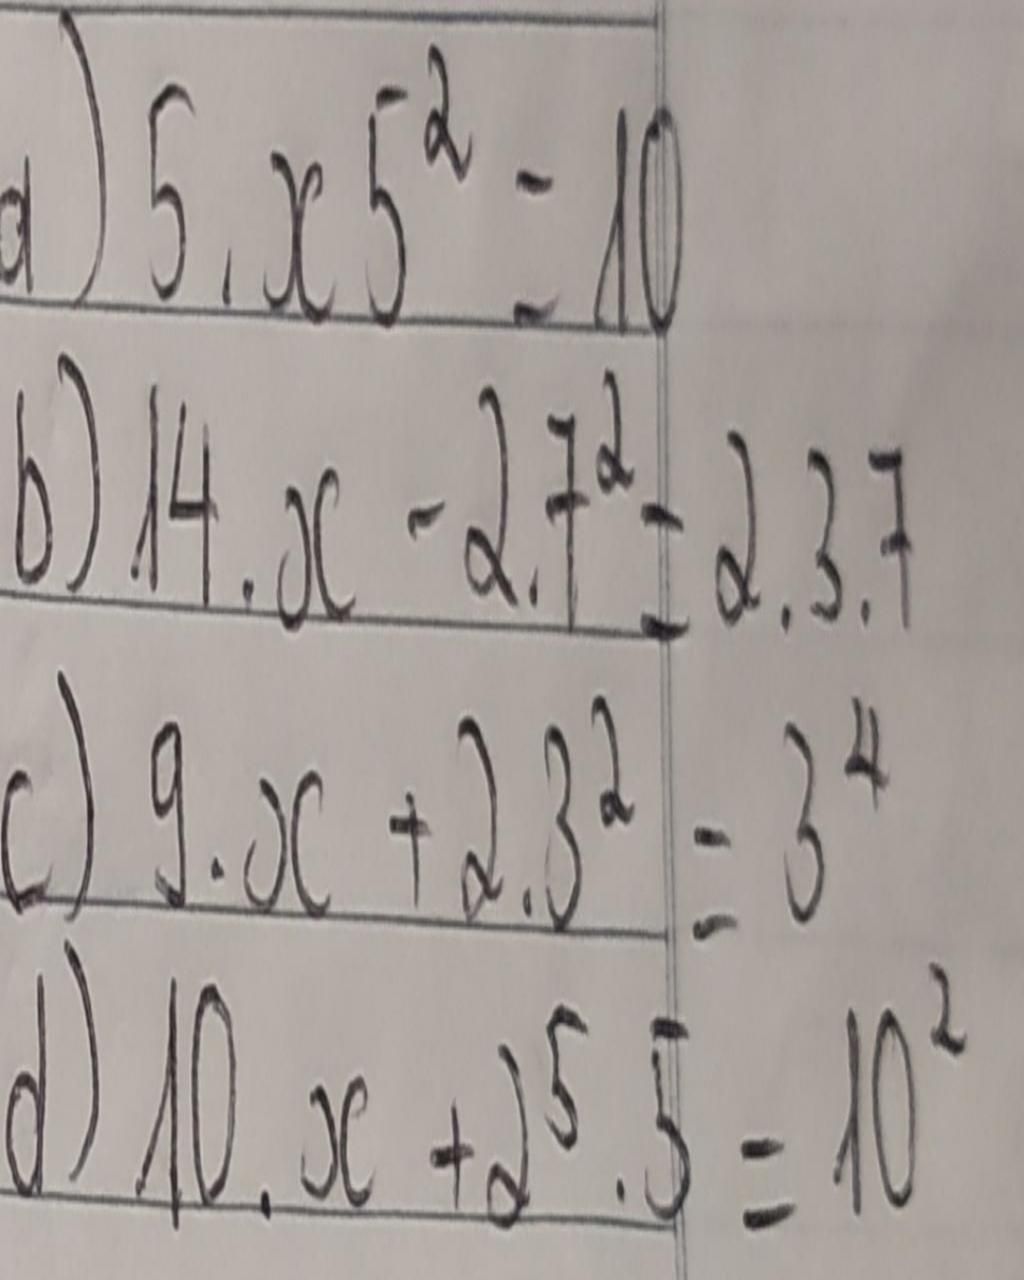 a) 5.x 5² = 10
b) 14.x - 2.7² = 2.3.7
c) 9.x + 2.3² = 3⁴
d) 10.x + 2⁵.5 = 10²